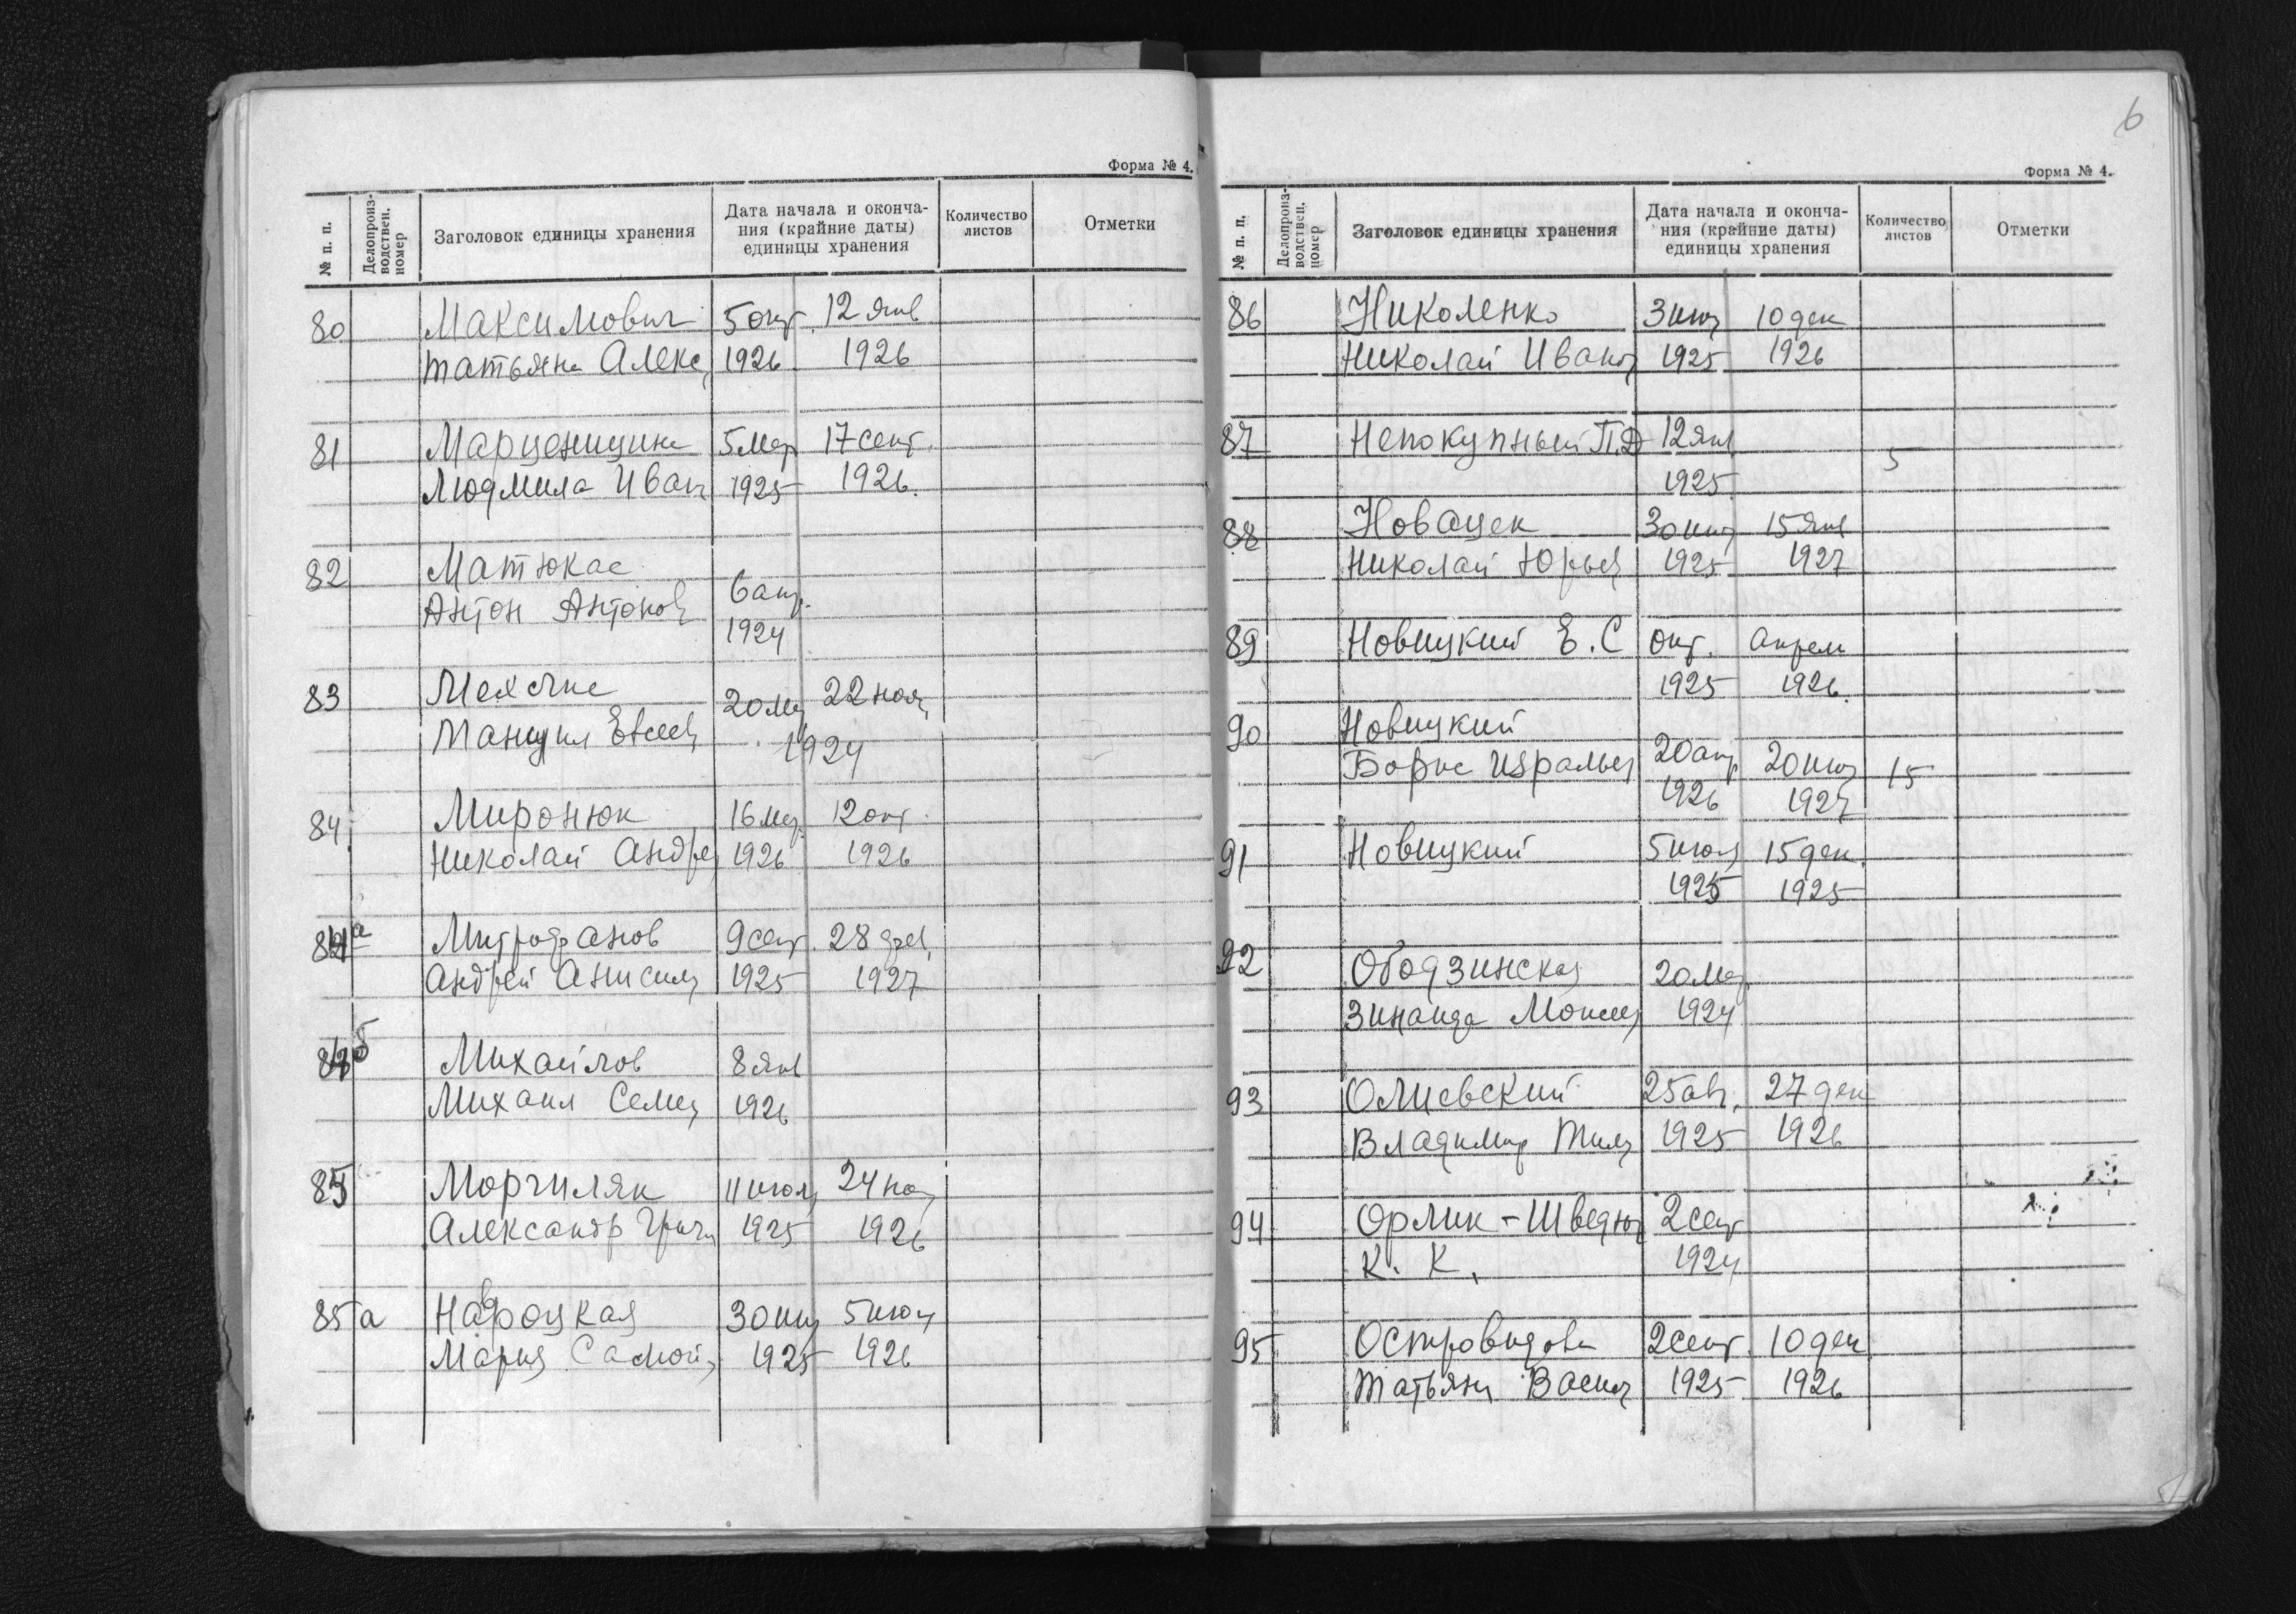 Форма № 4.
№ п. п.
Делопроиз-
водствен.
номер
Заголовок единицы хранения
Дата начала и оконча-
ния (крайние даты)
единицы хранения
Количество
листов
Отметки
80 Максимович 5 окт. 12 янв
Татьяна Алекс 1926 1926
81 Марценищина 5 мар 17 сент.
Людмила Иван 1925 1926.
82 Матюкас
Антон Антонов 6 апр.
1924
83
20 мар 22 ноя
1924
84. Миронюк 16 мар. 12 окт.
Николай Андре 1926 1926
84а Митрофанов 9 сент. 28
Андрей Анисим 1925 1927
84б Михайлов 8 янв
Михаил Семен 1926
85 Морчиляк 11 июл 24 ноя
Александр Григ 1925 1926
85а 30 5 июн
Мария Самой 1925 1926
6
Форма № 4.
№ п. п.
Делопроиз-
водствен.
номер
Заголовок единицы хранения
Дата начала и оконча-
ния (крайние даты)
единицы хранения
Количество
листов
Отметки
86 Николенко 3 10 дек
Николай Иван 1925 1926
87 Непокупный П.Д 12 янв
5
1925
88 Новацек 30 15 янв
Николай Юрьев 1925 1927
89 Новицкий Е.С окт. апрель
1925 1926.
90 Новицкий
Борис Израилев 20 апр 20 15
1926 1927
91 Новицкий 5 июл 15 дек.
1925 1925
92 Ободзинская 20 мар.
Зинаида Моисее 1924
93 Олиевский 25 авг. 27 дек
Владимир Тим 1925 1926
94 Орлик-Шведюк 2 сент
К. К. 1924
95 Островидова 2 сент. 10 дек
Татьяна Васил 1925 1926